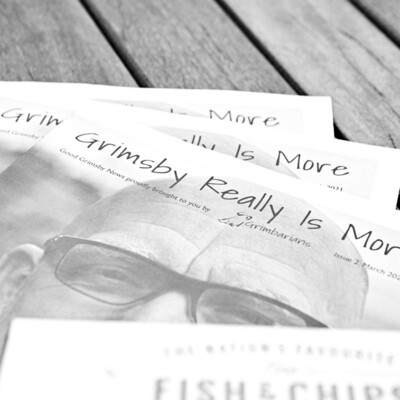 Grim
More
Good Grimsby News
lly Is More
Grimsby Really Is Mor
Good Grimsby News proudly brought to you by
Grimbarians
Issue 2. March 202
THE NATION'S FAVOURITE
FISH & CHIPS